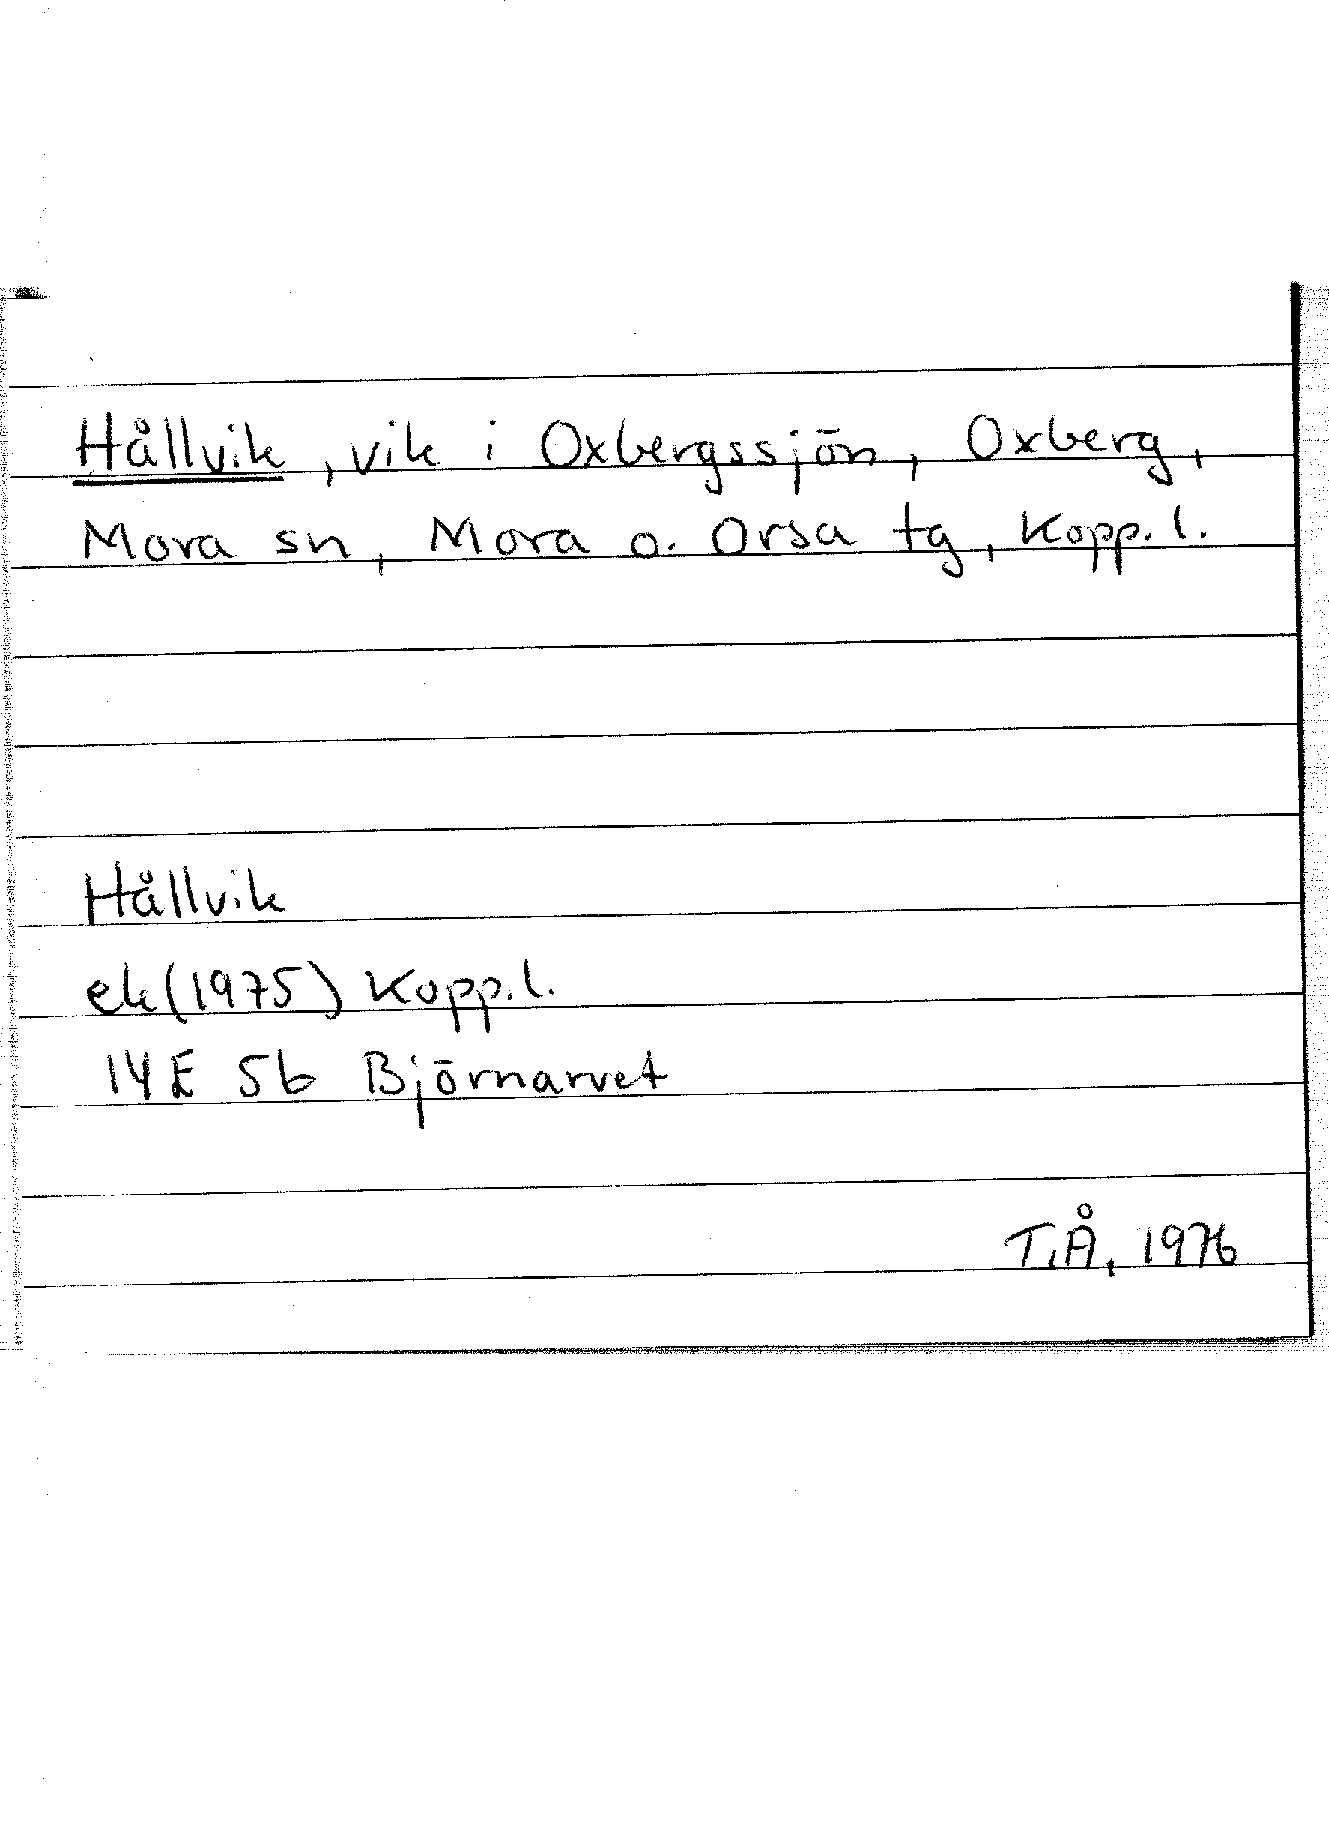 Hållvik, vik i Oxbergssjön, Oxberg,
Mora sn, Mora o. Orsa tg, Kopp. l.
Hållvik
ek (1975) Kopp. l.
14E 5b Björnarvet
T.Å, 1976